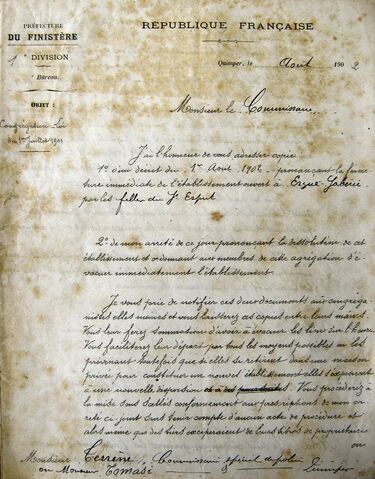 PRÉFECTURE
DU FINISTÈRE
1e DIVISION
e Bureau.
OBJET :
Congrégation Loi
du 1er juillet 1901
RÉPUBLIQUE FRANÇAISE
Quimper, le Août 1902
Monsieur le Commissaire,
J'ai l'honneur de vous adresser copie
1° d'un décret du 1er Août 1902 prononçant la ferme
ture immédiate de l'établissement ouvert à Ergué-Gabéric
par les filles du St Esprit
2° de mon arrêté de ce jour prononçant la dissolution de cet
établissement et ordonnant aux membres de cette agrégation d'é-
vacuer immédiatement l'établissement.
Je vous prie de notifier ces deux documents aux congréga-
nistes elles mêmes et vous laisserez les copies entre leurs mains.
Vous leur ferez sommation d'avoir à évacuer les lieux sur l'heure.
Vous faciliterez leur départ par tous les moyens possibles en les
prévenant toutefois que si elles se retirent dans une maison
privée pour constituer un nouvel établissement elles s'exposeront
à une nouvelle dispersion et à des. Vous procéderez à
la mise sous scellés conformément aux prescriptions de mon ar-
rêté ci joint sans tenir compte d'aucun acte de procédure et
alors même que des tiers exciperaient de leurs titres de propriétaire
ou
Monsieur Terrène, Commissaire spécial de police
ou Monsieur Tomasi à Quimper